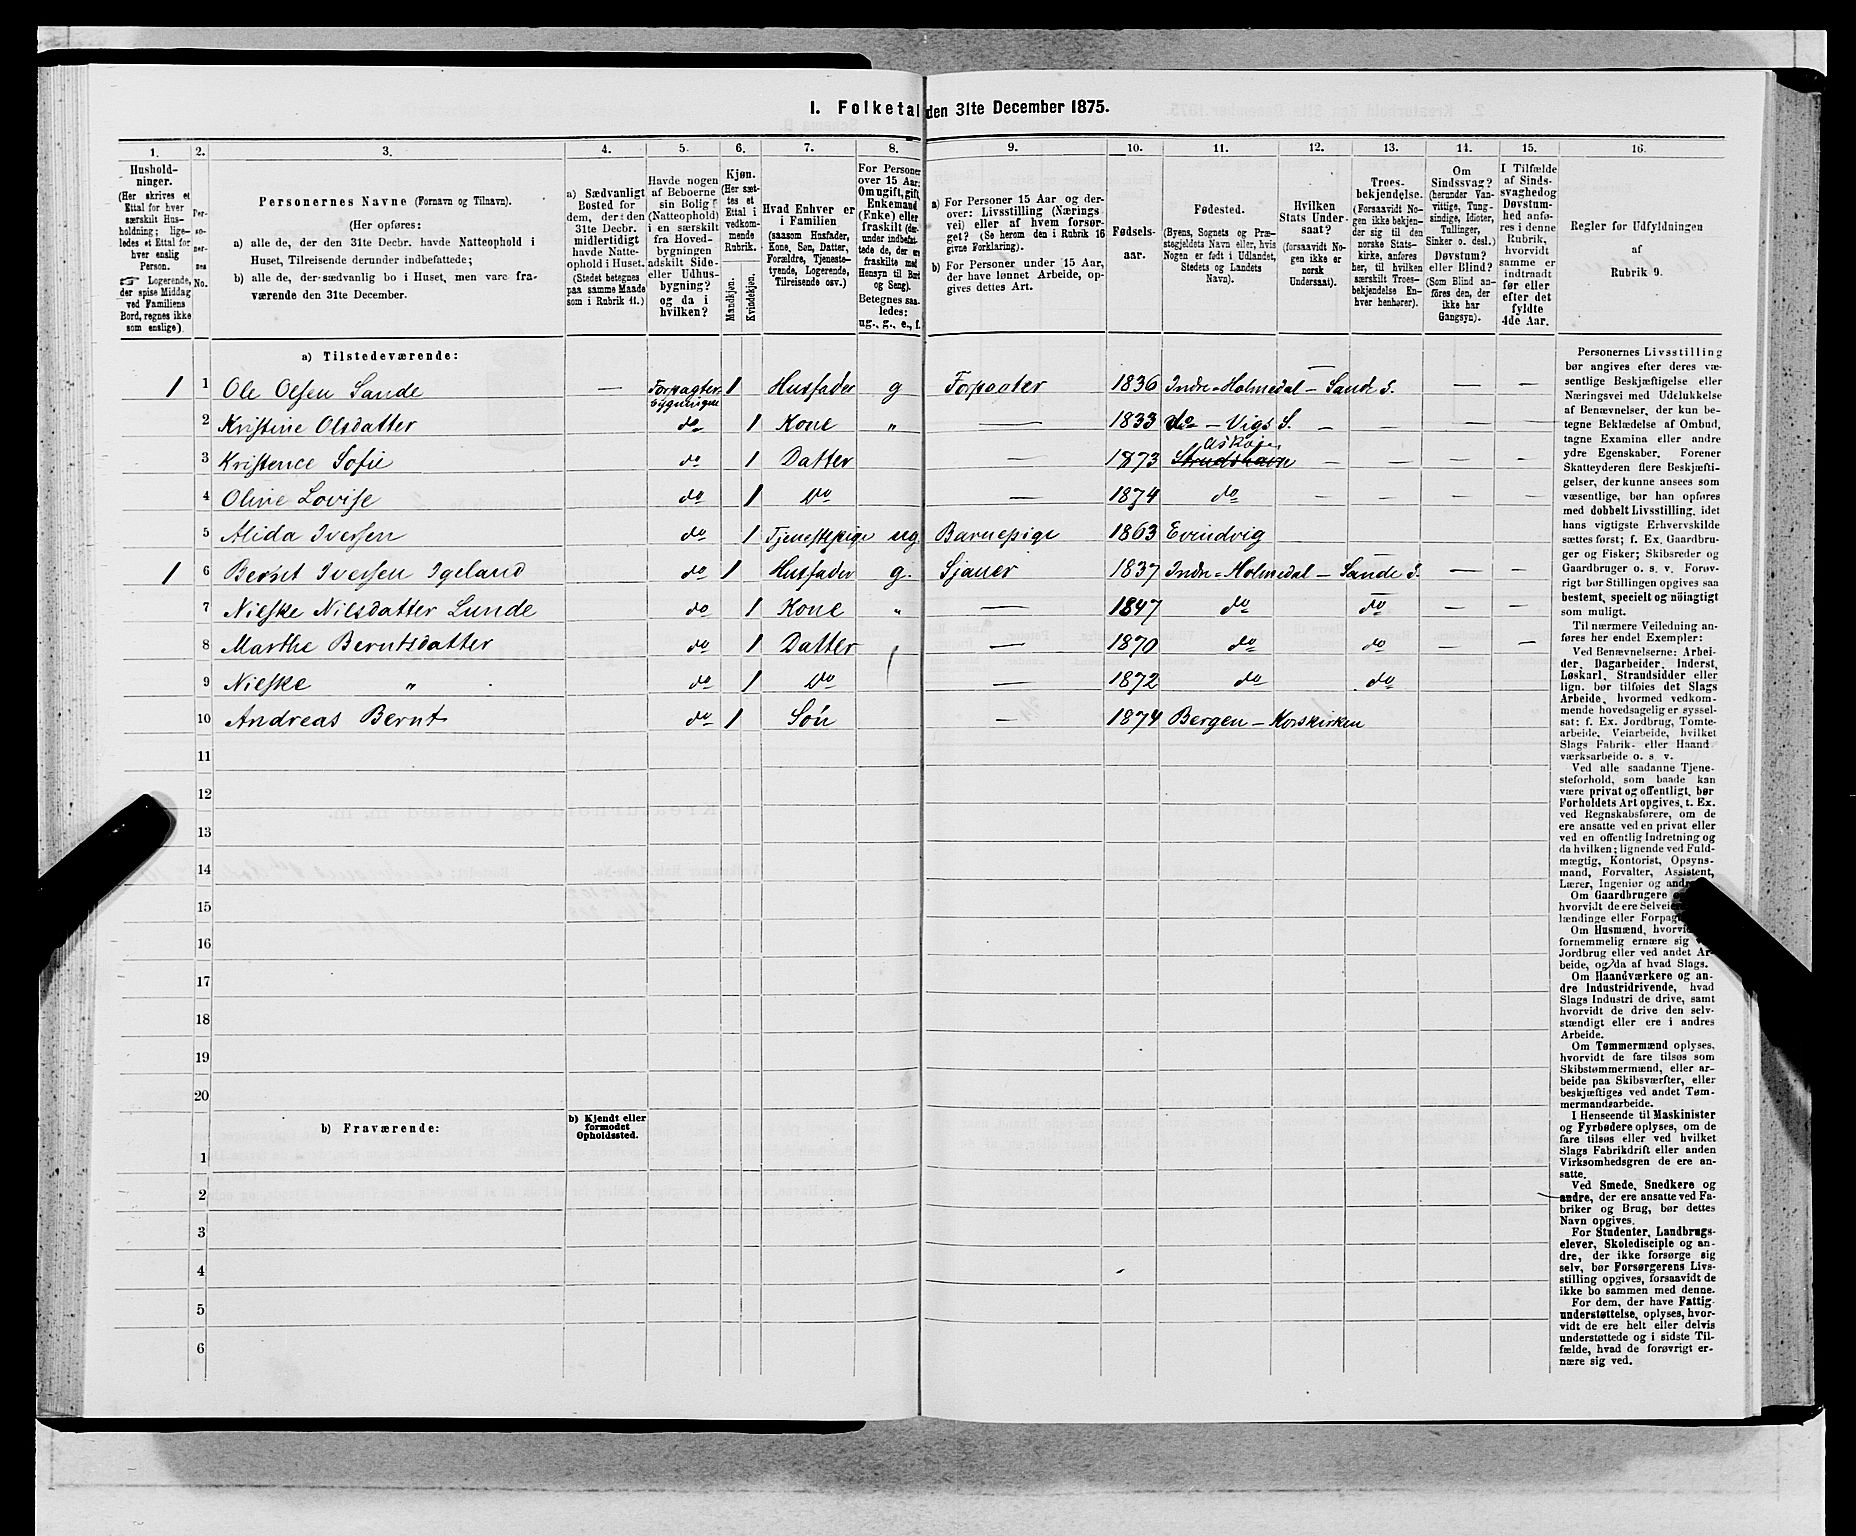 1. Folketal den 31te December 1875.
1. 2. 3. 4. 5. 6. 7. 8. 9. 10. 11. 12. 13. 14. 15. 16.
Hushold-
ninger.
(Her skrives et
Ettal for hver
særskilt Hus-
holdning; lige-
ledes et Ettal for
hver enslig
Person.
☞ Logerende,
der spise Middag
ved Familiens
Bord, regnes ikke
som enslige).
Per-
so-
ner-
nes
No.
Personernes Navne (Fornavn og Tilnavn).
(Her opføres:
a) alle de, der den 31te Decbr. havde Natteophold i
Huset, Tilreisende derunder indbefattede;
b) alle de, der sædvanlig bo i Huset, men vare fra-
værende den 31te December.
a) Sædvanligt
Bosted for
dem, der den
31te Decbr.
midlertidigt
havde Natte-
ophold i Huset.
(Stedet betegnes
paa samme Maade
som i Rubrik 11.)
Havde nogen
af Beboerne
sin Bolig
(Natteophold)
i en særskilt
fra Hoved-
bygningen
adskilt Side-
eller Udhus-
bygning?
og da i
hvilken?
Kjøn.
(Her sæt-
tes et
Ettal i
vedkom-
mende
Rubrik.
Mandkjøn.
Kvindekjøn.
Hvad Enhver er
i Familien
(saasom Husfader,
Kone, Søn, Datter,
Forældre, Tjeneste-
tyende, Logerende,
Tilreisende osv.)
For Personer
over 15 Aar:
Om ugift, gift,
Enkemand
(Enke) eller
fraskilt (der-
under indbefat-
tede de, der ere
fraskilte med
Hensyn til Bord
og Seng).
Betegnes saa-
ledes:
ug., g., e., f.
a) For Personer 15 Aar og der-
over: Livsstilling (Nærings-
vei) eller af hvem forsør-
get? (Se herom den i Rubrik 16
givne Forklaring).
b) For Personer under 15 Aar,
der have lønnet Arbeide, op-
gives dettes Art.
Fødsels-
aar.
Fødested.
(Byens, Sognets og Præ-
stegjeldets Navn eller, hvis
Nogen er født i Udlandet,
Stedets og Landets
Navn).
Hvilken
Stats Under-
saat?
(forsaavidt No-
gen ikke er
norsk
Undersaat).
Troes-
bekjendelse.
(Forsaavidt No-
gen ikke bekjen-
der sig til den
norske Stats-
kirke, anføres
her, til hvilken
særskilt Troes-
bekjendelse En-
hver henhører).
Om
Sindssvag?
(herunder Van-
vittige, Tung-
sindige, Idioter,
Tullinger,
Sinker o. desl.)
Døvstum?
eller Blind?
(Som Blind an-
føres den, der
ikke har
Gangsyn).
I Tilfælde
af Sinds-
svaghed og
Døvstum-
hed anfø-
res i denne
Rubrik,
hvorvidt
samme er
indtraadt
før eller
efter det
fyldte
4de Aar.
Regler for Udfyldningen
af
Rubrik 9.
a) Tilstedeværende:
1 1 Ole Olsen Sande — Forpagter-bygningen 1 Husfader g Forpagter 1836 Indre-Holmedal – Sande S. — —
2 Kristine Olsdatter do 1 Kone „ — 1833 do – Vigs S. — — — —
3 Kristence Sofie do 1 Datter — 1873 Strudshavn Askøen — — — —
4 Oline Lovise do 1 Do — 1874 do — — — —
5 Alida Iversen do 1 Tjenestpige ug Barnepige 1863 Evindvig
1 6 Bernt Iversen Igeland do 1 Husfader g. Sjauer 1837 Indre-Holmedal – Sande S. — —
7 Nilske Nilsdatter Lunde do 1 Kone „ — 1847 do do — —
8 Marthe Berntsdatter do 1 Datter — 1870 do do — —
9 Nilske „ do 1 Do — 1872 do do
10 Andreas Bernt do 1 Søn — 1874 Bergen – Korskirken
11
12
13
14
15
16
17
18
19
20
b) Fraværende:
b) Kjendt eller
formodet
Opholdssted.
1
2
3
4
5
6
Personernes Livsstilling
bør angives efter deres væ-
sentlige Beskjæftigelse eller
Næringsvei med Udelukkelse
af Benævnelser, der kun be-
tegne Beklædelse af Ombud,
tagne Examina eller andre
ydre Egenskaber. Forener
Skatteyderen flere Beskjæfti-
gelser, der kunne ansees som
væsentlige, bør han opføres
med dobbelt Livsstilling, idet
hans vigtigste Erhvervskilde
sættes først; f. Ex. Gaardbru-
ger og Fisker; Skibsreder og
Gaardbruger o. s. v. Forøv-
rigt bør Stillingen opgives saa
bestemt, specielt og nöiagtigt
som muligt.
Til nærmere Veiledning an-
føres her endel Exempler:
Ved Benævnelserne: Arbei-
der, Dagarbeider, Inderst,
Løskarl, Strandsidder eller
lign. bør tilføies det Slags
Arbeide, hvormed vedkom-
mende hovedsagelig er syssel-
sat; f. Ex. Jordbrug, Tomte-
arbeide, Veiarbeide, hvilket
Slags Fabrik- eller Haand
værksarbeide o. s. v.
Ved alle saadanne Tjene-
steforhold, som baade kan
være privat og offentligt, bør
Forholdets Art opgives, t. Ex.
ved Regnskabsførere, om de
ere ansatte ved en privat eller
ved en offentlig Indretning og
da hvilken; lignende ved Fuld-
mægtig, Kontorist, Opsyns-
mand, Forvalter, Assistent,
Lærer, Ingeniør og andre
Om Gaardbrugere
hvorvidt de ere Selveiere
lændinge eller
Om Husmænd,
fornemmelig ernære sig
Jordbrug eller ved andet Ar-
beide, og da af hvad Slags.
Om Haandværkere og an-
dre Industridrivende, hvad
Slags Industri de drive, samt
hvorvidt de drive den selv-
stændigt eller ere i andres
Arbeide.
Om Tømmermænd oplyses,
hvorvidt de fare tilsøs som
Skibstømmermænd, eller ar-
beide paa Skibsværfter, eller
beskjæftiges ved andet Tøm-
mermandsarbeide.
I Henseende til Maskinister
og Fyrbødere oplyses, om de
fare tilsøs eller ved hvilket
Slags Fabrikdrift eller anden
Virksomhedsgren de ere an-
satte.
Ved Smede, Snedkere og
andre, der ere ansatte ved Fa-
briker og Brug, bør dettes
Navn opgives.
For Studenter, Landbrugs-
elever, Skoledisciple og an-
dre, der ikke forsørge sig
selv, bør Forsørgerens Livs-
stilling opgives, forsaavidt de
ikke bo sammen med denne.
For dem, der have Fattig-
understøttelse, oplyses, hvor-
vidt de ere helt eller delvis
understøttede og i sidste Til-
fælde, hvad de forøvrigt er-
nære sig ved.